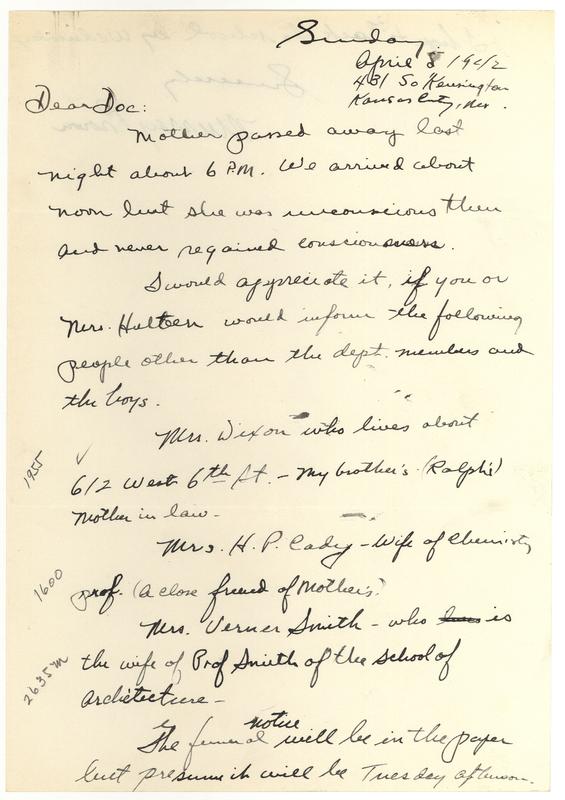 Sunday
April 5 1942
431 So Kensington
Kansas City, Mo.
Dear Doc:
Mother passed away last
night about 6 P.M. We arrived about
noon but she was unconscious then
and never regained consciousness.
I would appreciate it, if you or
Mrs. Hulteen would inform the following
people other than the dept. members and
the boys.
Mrs. Dixon who lives about
1955 ✓
612 West 6th St. - My brother's (Ralph's)
Mother in law -
Mrs. H. P. Cady - Wife of Chemistry
1600
prof. (a close friend of Mother's)
Mrs. Verner Smith - who is
the wife of Prof Smith of the School of
2635 M
architecture -
The funeral notice will be in the paper
but presume it will be Tuesday afternoon.